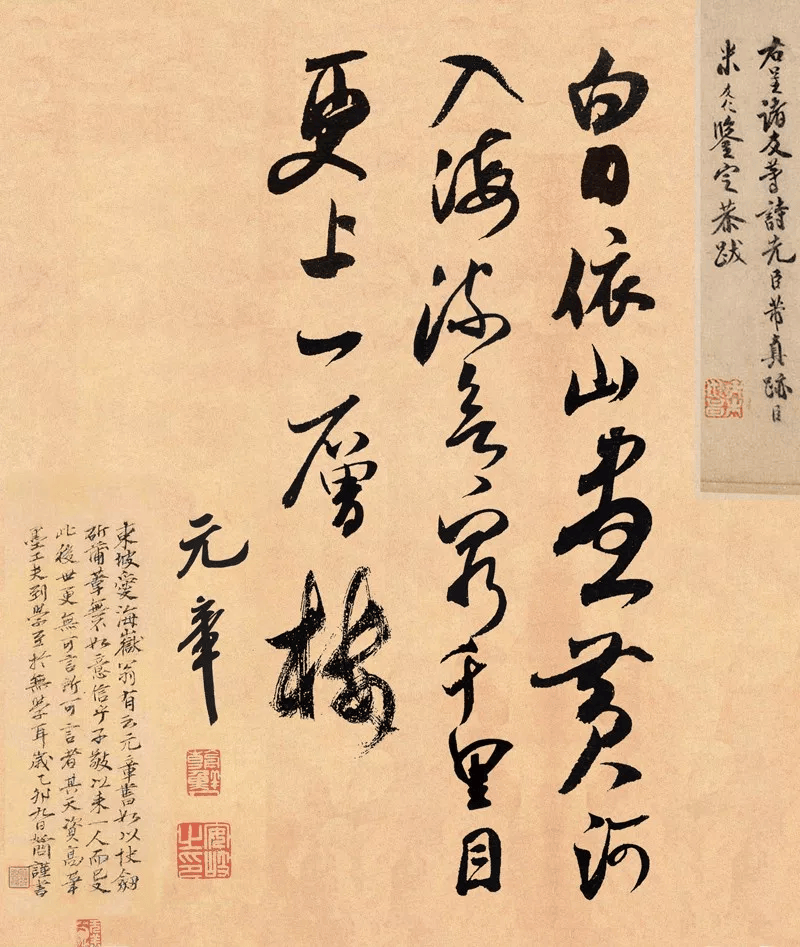 右呈諸友等詩先臣芾真跡臣
米友仁鑒定恭跋
白日依山盡黃河
入海流欲窮千里目
更上一層樓
元章
東坡愛海嶽翁有云元章書如以快劍
斫蒲葦無不如意信乎子敬以来一人而已
此後世更無可言所可言者其天資高筆
墨工夫到學至於無學耳歲乙卯九日謹書